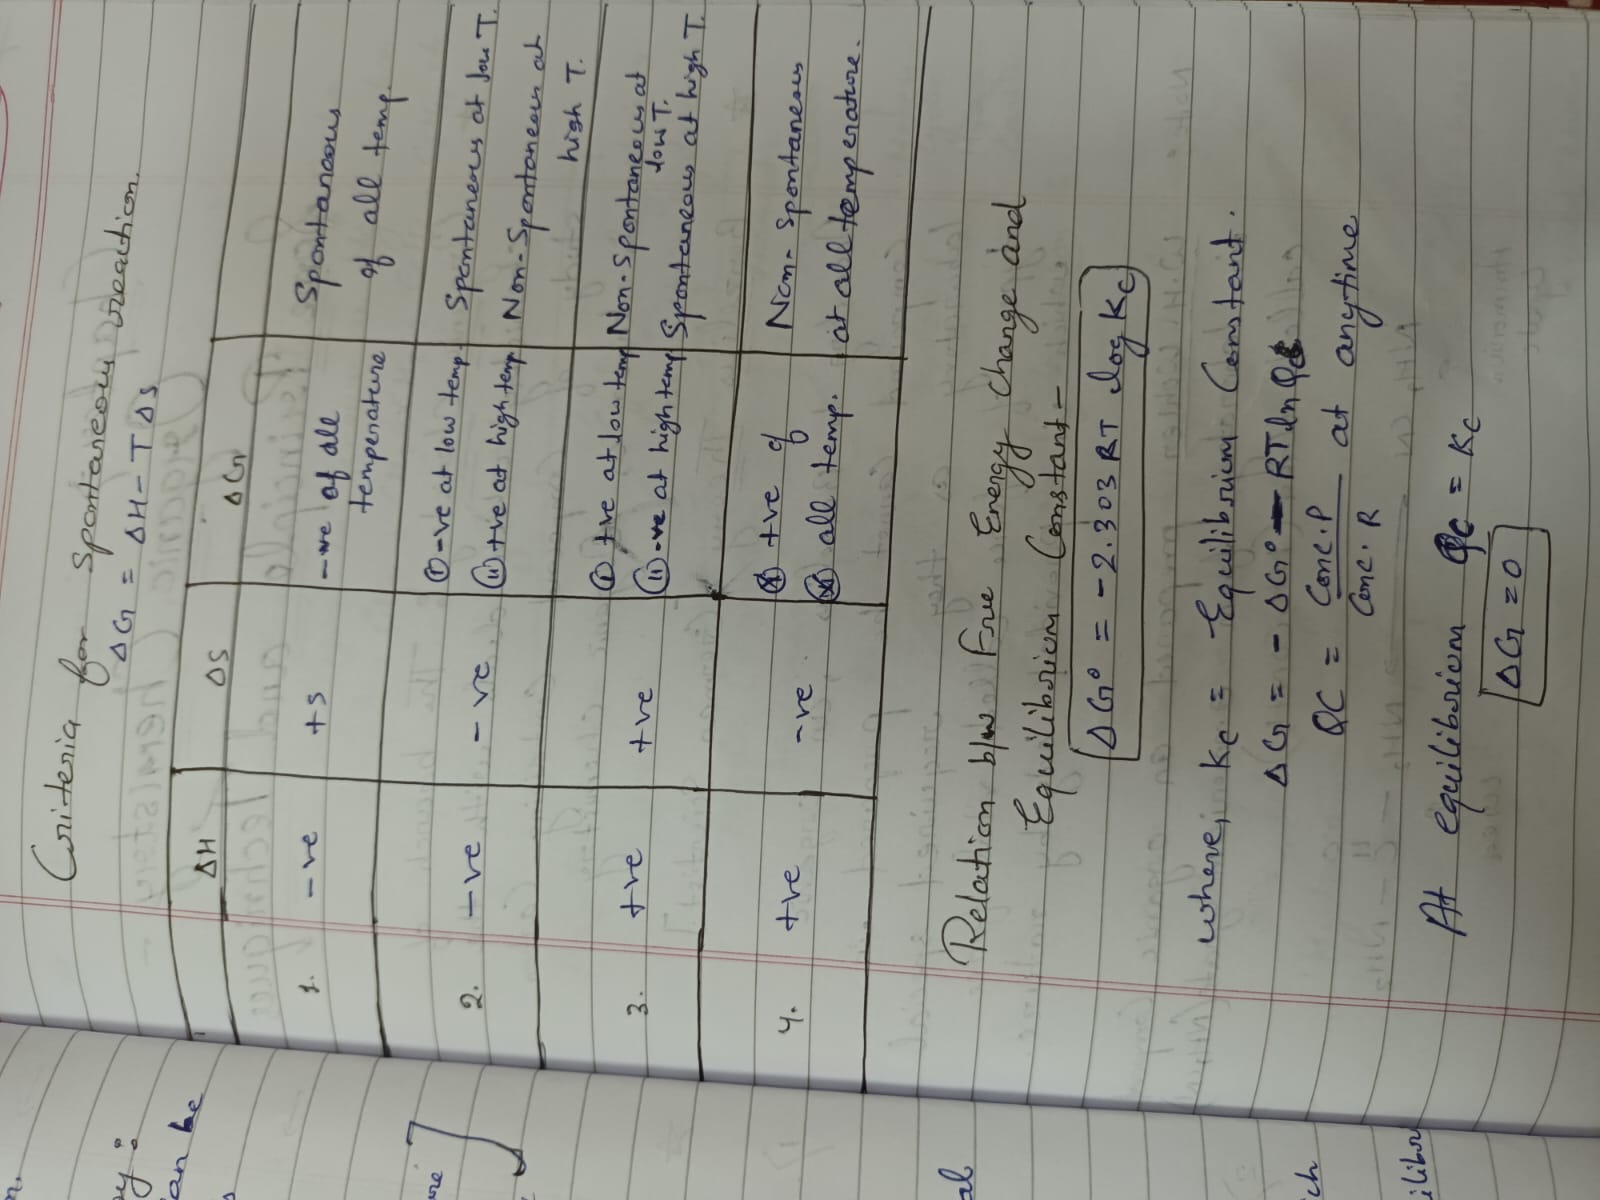 Criteria for spontaneous reaction.
ΔG = ΔH - TΔS
ΔH ΔS ΔG
1. -ve +s -ve of all temperature Spontaneous of all temp.
2. -ve -ve (i) -ve at low temp. Spontaneous at low T.
(ii) +ve at high temp Non-Spontaneous at high T.
3. +ve +ve (i) +ve at low temp Non-Spontaneous at low T.
(ii) -ve at high temp Spontaneous at high T.
4. +ve -ve +ve of all temp. Non-Spontaneous at all temperature.
Relation b/w Free Energy change and
Equilibrium Constant-
ΔG° = -2.303 RT log Kc
where, Kc = Equilibrium Constant.
ΔG = - ΔG° - RT ln Qc
QC = Conc. P / Conc. R at anytime
At equilibrium Qc = Kc
ΔG = 0
can be